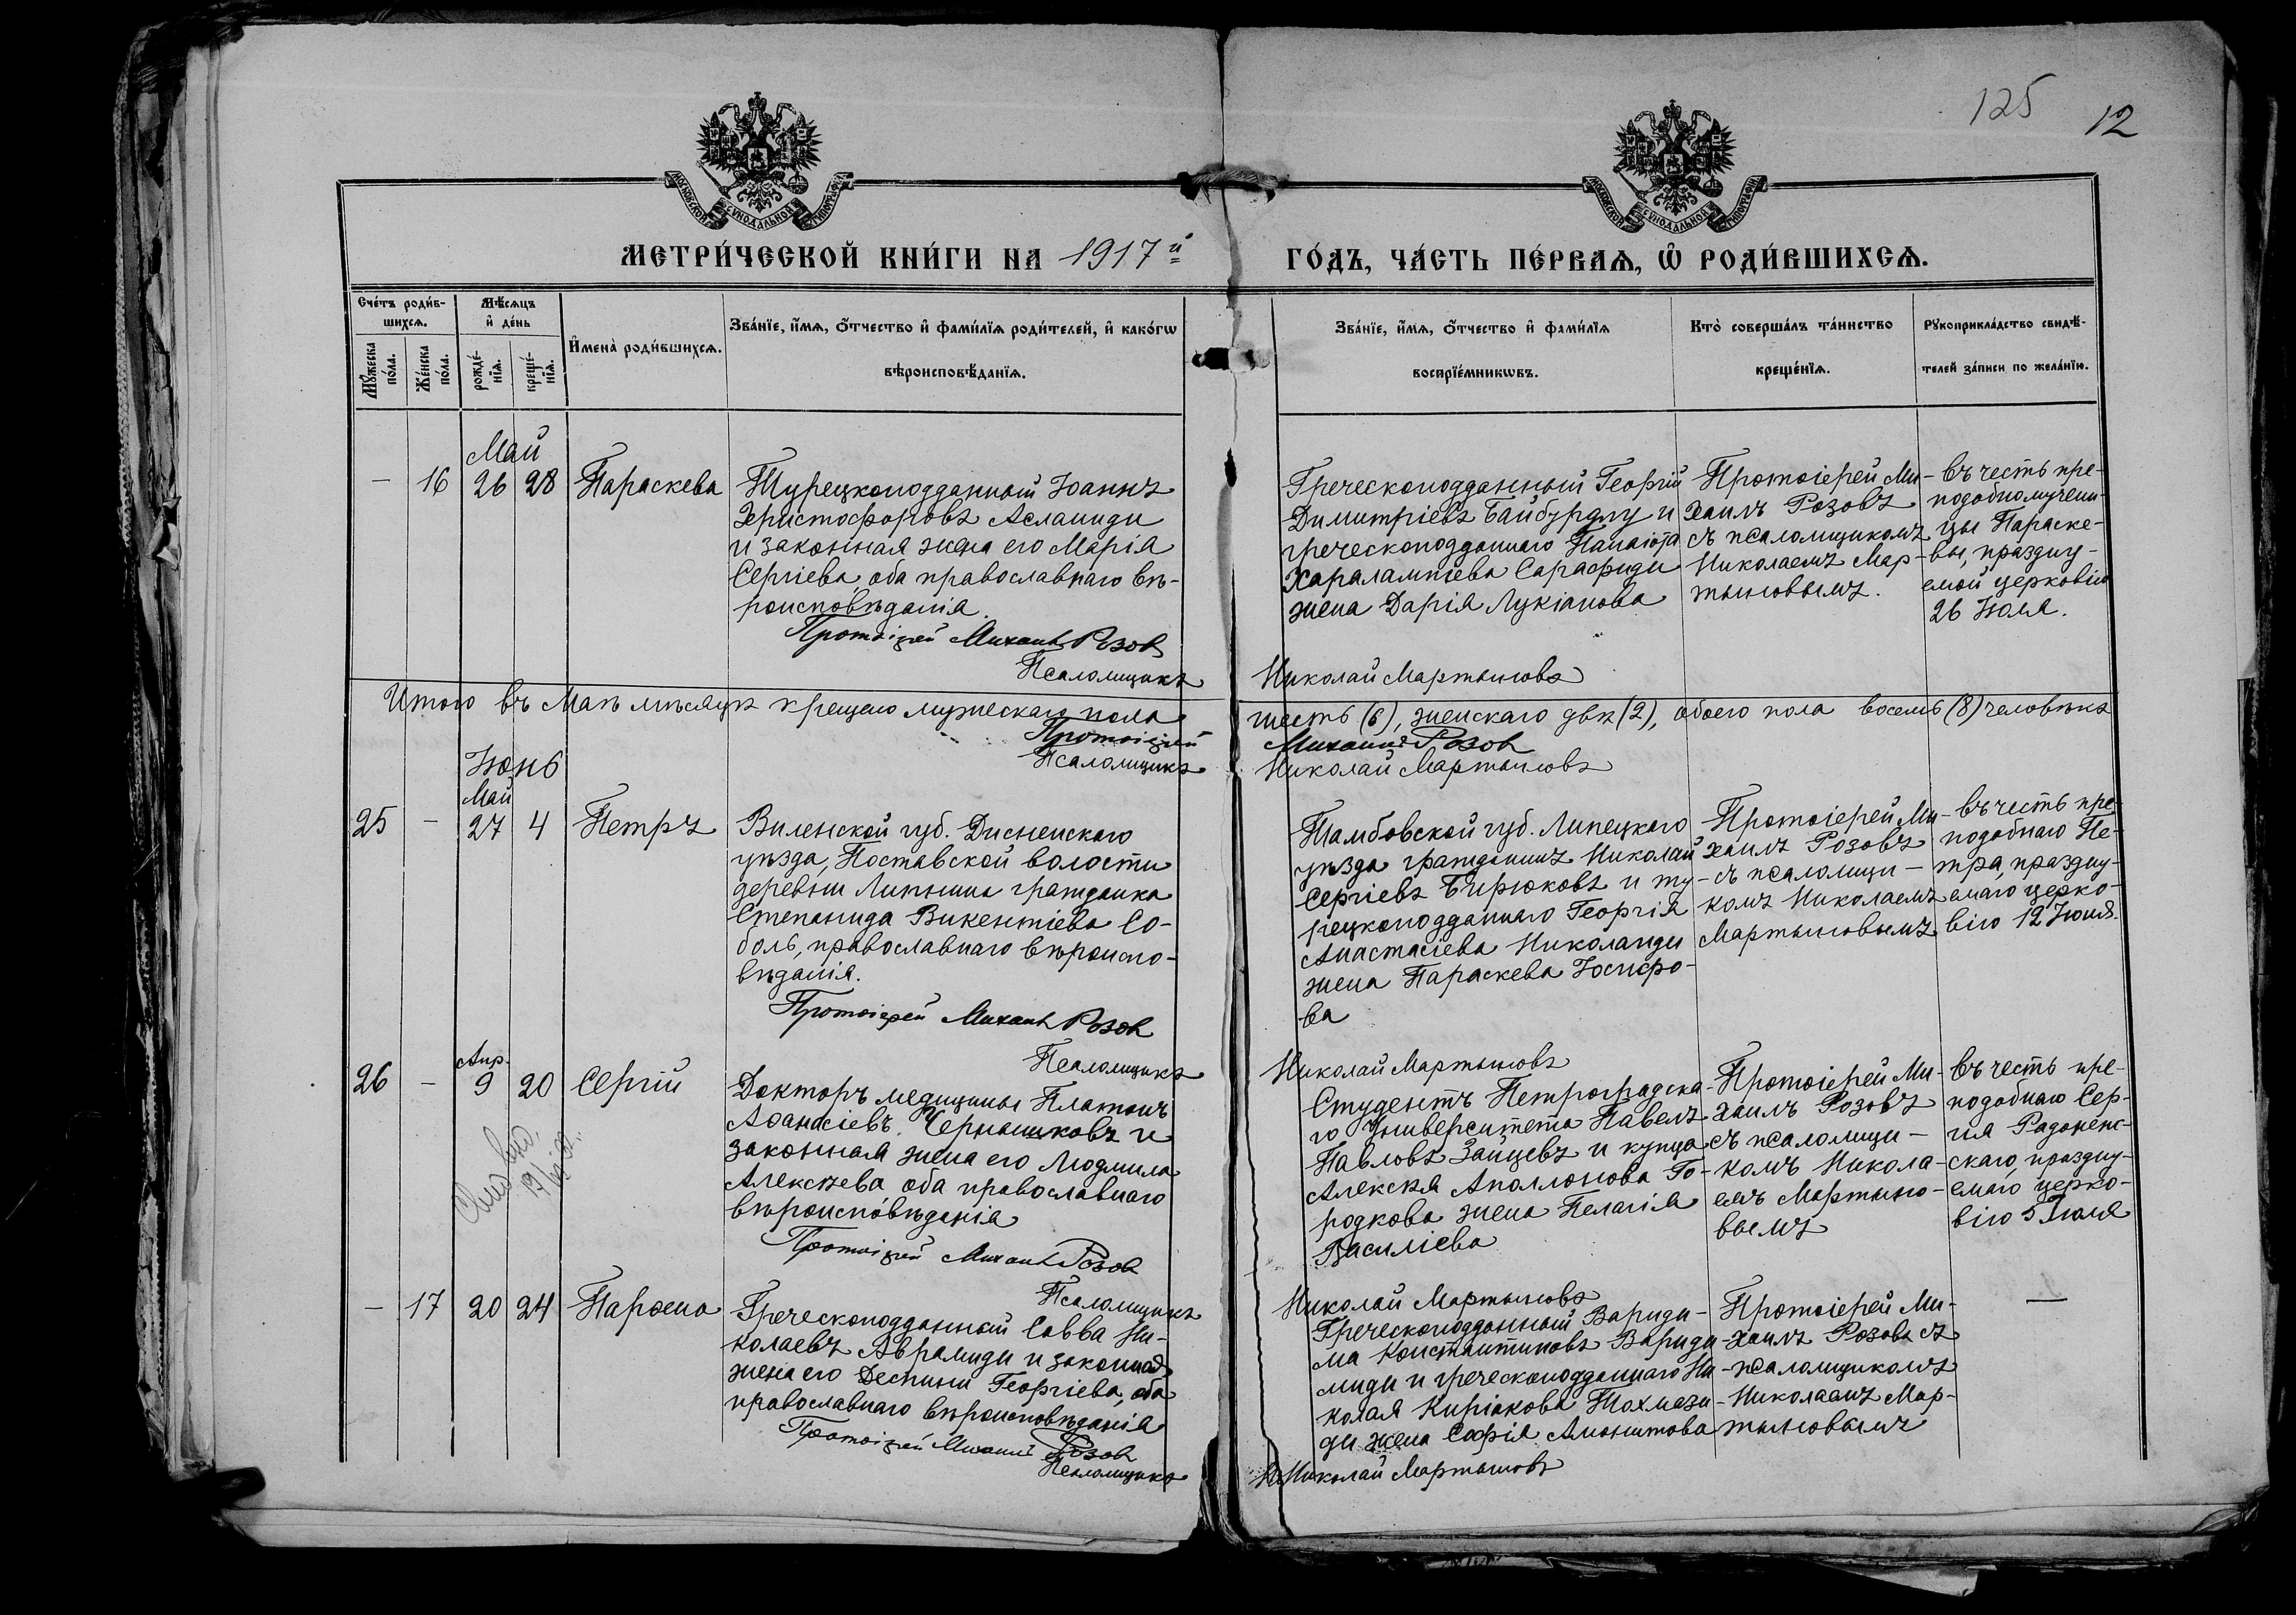 125 12
МОСКОВСКОЙ СѴНОДАЛЬНОЙ ТИПОГРАФІИ
МОСКОВСКОЙ СѴНОДАЛЬНОЙ ТИПОГРАФІИ
МЕТРИ́ЧЕСКОЙ КНИ́ГИ НА 1917 й ГО́ДЪ, ЧА́СТЬ ПЕ́РВАѦ, Ѡ҆ РОДИ́ВШИХСѦ.
Сче́тъ роди́в-
шихсѧ.
Мꙋ́жеска по́ла.
Же́нска по́ла.
Мѣ́сѧцъ
и҆ де́нь
рожде́-
нїѧ.
креще́-
нїѧ.
И҆мена̀ роди́вшихсѧ.
Зва́нїе, и҆́мѧ, ѻ҆́тчество и҆ фами́лїѧ роди́телей, и҆ како́гѡ
вѣроисповѣ́данїѧ.
Зва́нїе, и҆́мѧ, ѻ҆́тчество и҆ фами́лїѧ
воспрїе́мникѡвъ.
Кто̀ соверша́лъ та́инство
креще́нїѧ.
Рꙋкоприкла́дство свидѣ́-
телей за́писи по жела́нїю.
Май
— 16 26 28 Параскева
Турецкоподданный Іоаннъ
Христофоровъ Асланиди
и законная жена его Марія
Сергіева оба православнаго вѣ-
роисповѣданія.
Протоіерей Михаилъ Розов
Псаломщикъ Николай Мартыновъ
Греческоподданный Георгій
Димитріевъ Байбурдлу и
греческоподданнаго Панаіота
Харалампіева Сарафиди
жена Дарія Лукіанова
Протоіерей Ми-
хаилъ Розовъ
съ псаломщикомъ
Николаемъ Мар-
тыновымъ.
въ честь пре-
подобномучени-
цы Параске-
вы, праздну-
емой церковію
26 Іюля.
Итого въ Маѣ мѣсяцѣ крещено мужескаго пола шесть (6), женскаго двѣ (2), обоего пола восемь (8) человѣкъ
Протоіерей Михаилъ Розов
Псаломщикъ Николай Мартыновъ
Іюнь
Май
25 — 27 4 Петръ
Виленской губ. Дисненскаго
уѣзда, Поставской волости
деревни гражданка
Степанида Викентіева Со-
боль, православнаго вѣроиспо-
вѣданія.
Протоіерей Михаилъ Розов
Псаломщикъ Николай Мартыновъ
Тамбовской губ. Липецкаго
уѣзда гражданинъ Николай
Сергіевъ Бирюковъ и ту-
рецкоподданнаго Георгія
Анастасіева Николаиди
жена Параскева Іосифо-
ва
Протоіерей Ми-
хаилъ Розовъ
съ псаломщи-
комъ Николаемъ
Мартыновымъ
въ честь пре-
подобнаго Пе-
тра, праздну-
емаго церко-
вію 12 Іюня.
Апр.
26 — 9 20 Сергій
Докторъ медицины Платонъ
Аѳанасіевъ Чернышковъ и
законная жена его Людмила
Алексѣева оба православнаго
вѣроисповѣданія
Протоіерей Михаилъ Розов
Псаломщикъ Николай Мартыновъ
Студентъ Петроградска-
го Университета Павелъ
Павловъ Зайцевъ и купца
Алексѣя Аполлонова Го-
родкова жена Пелагія
Василіева
Протоіерей Ми-
хаилъ Розовъ
съ псаломщи-
комъ Никола-
емъ Мартыно-
вымъ
въ честь пре-
подобнаго Сер-
гія Радонеж-
скаго, праздну-
емаго церко-
вію 5 Іюля
— 17 20 24 Парѳена
Греческоподданный Савва Ни-
колаевъ Аврамиди и законная
жена его Деспина Георгіева, оба
православнаго вѣроисповѣданія
Протоіерей Михаилъ Розов
Псаломщикъ Николай Мартыновъ
Греческоподданный Вариди-
ма Константиновъ Вариди-
миди и греческоподданнаго Ни-
колая Киріакова Тахмази-
ди жена Софія
Протоіерей Ми-
хаилъ Розовъ съ
псаломщикомъ
Николаемъ Мар-
тыновымъ
—